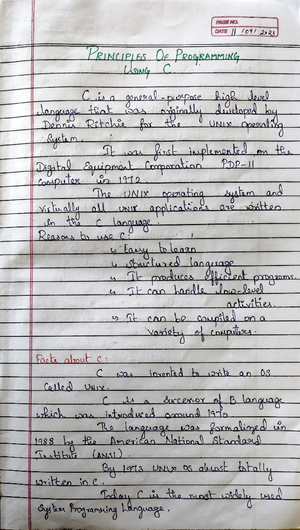 PAGE NO.
DATE 11 / 09 / 2021
PRINCIPLES OF PROGRAMMING
USING C.
C is a general-purpose high level
language that was originally developed by
Dennis Ritchie for the UNIX operating
system.
It was first implemented on the
Digital Equipment Corporation PDP-11
computer in 1972
The UNIX operating system and
virtually all unix applications are written
in the C language.
Reasons to use C:
↳ Easy to learn
↳ structured language
↳ It produces efficient programs.
↳ It can handle low-level
activities.
↳ It can be compiled on a
variety of computers.
Facts about C:
C was invented to write an OS
called Unix.
C is a successor of B language
which was introduced around 1970
The language was formalized in
1988 by the American National Standard
Institute (ANSI)
By 1973 UNIX OS almost totally
written in C.
Today C is the most widely used
System Programming Language.